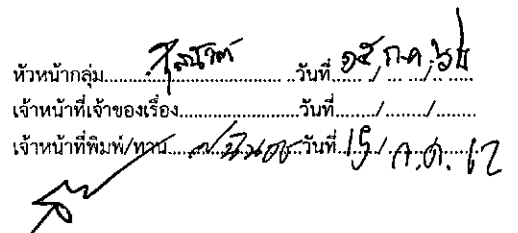 หัวหน้ากลุ่ม.......................วันที่ ๑๕ / ก.ค. / ๖๒
เจ้าหน้าที่เจ้าของเรื่อง.......................วันที่......../......../........
เจ้าหน้าที่พิมพ์/ทาน.......................วันที่ 15 / ก.ค. 62